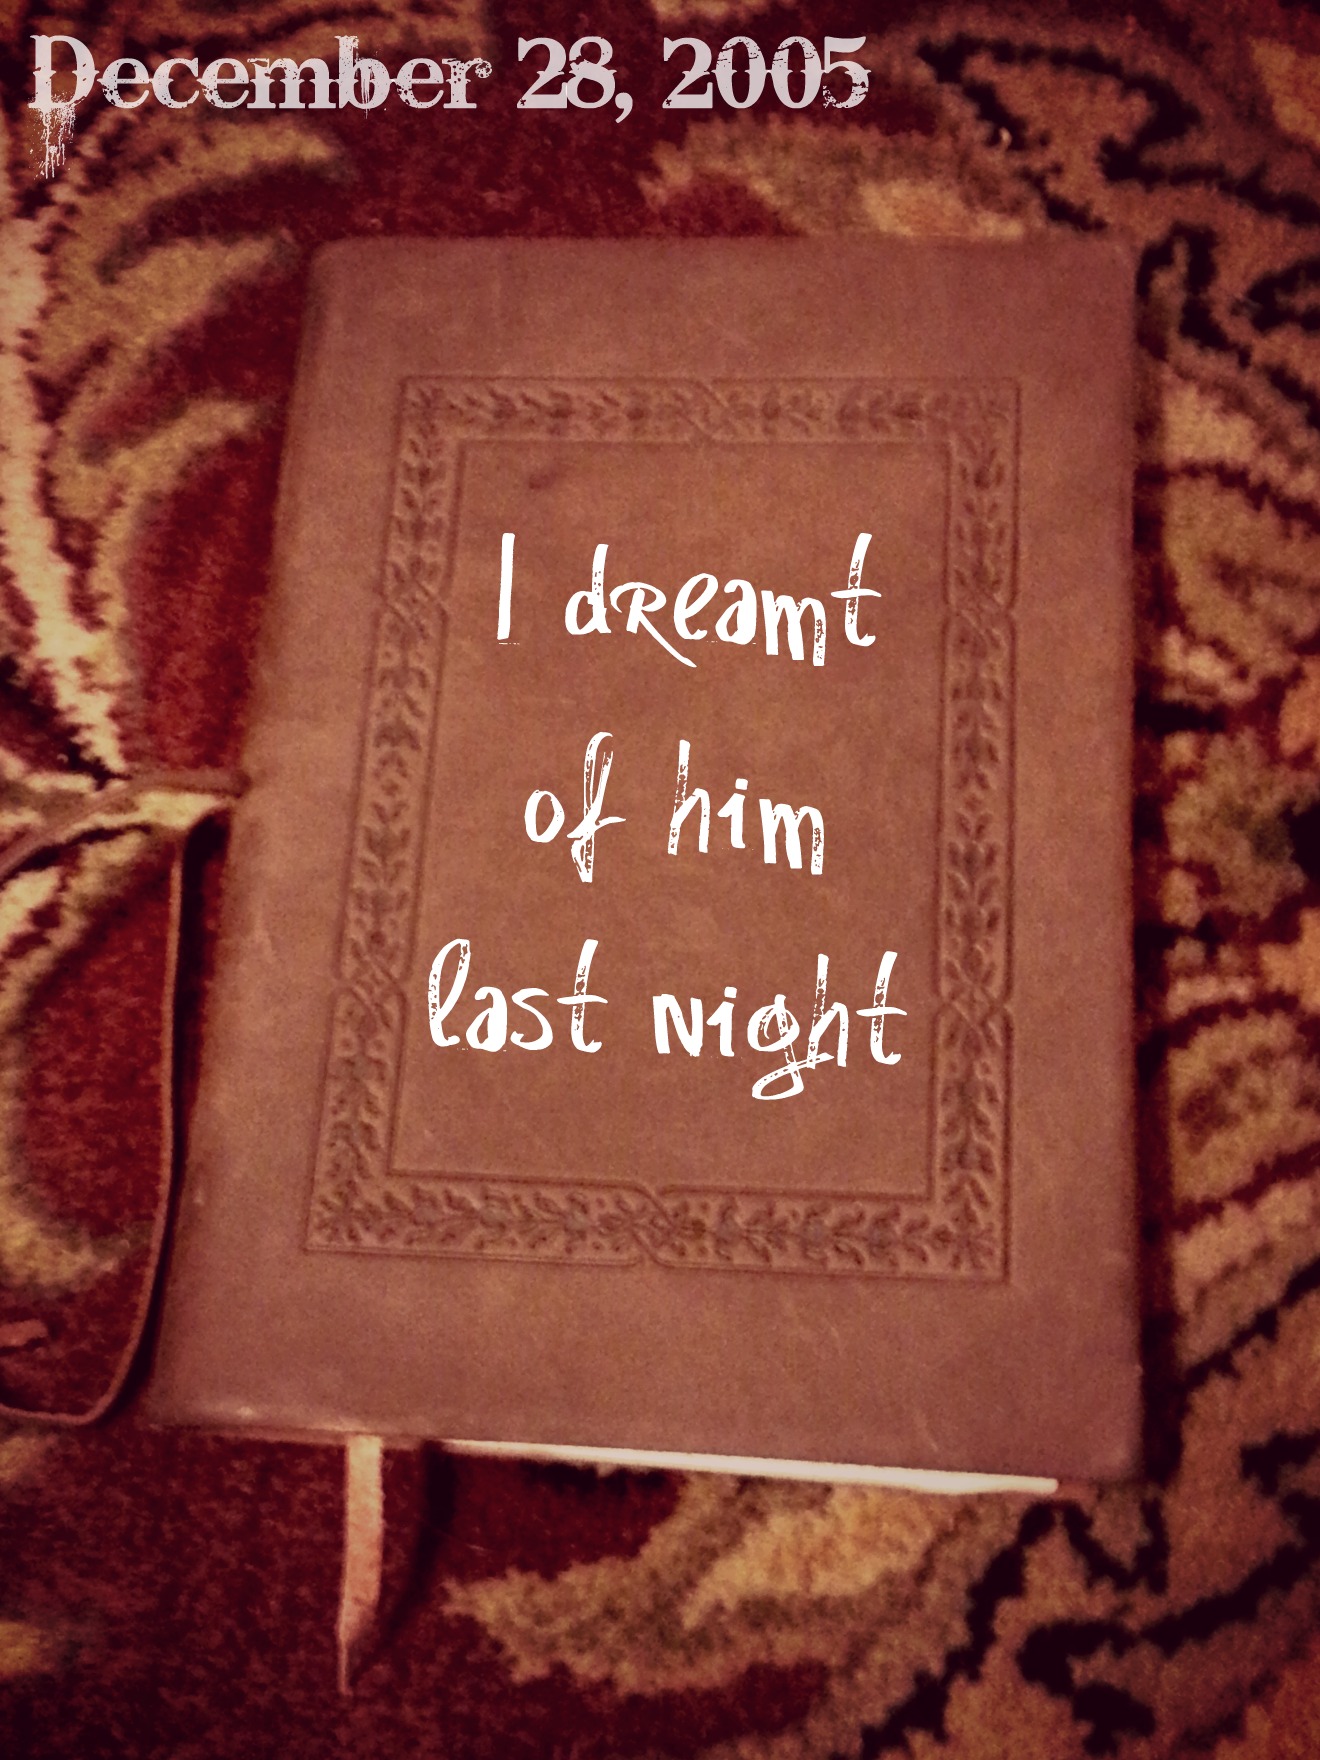 December 28, 2005
I dreamt
of him
last night